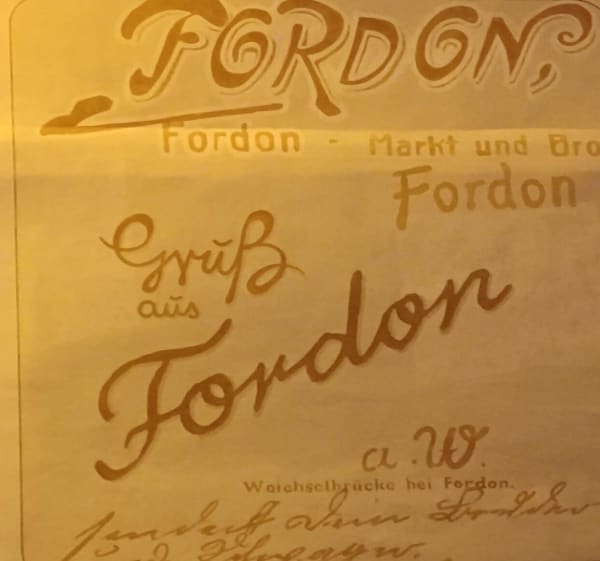 FORDON,
Fordon - Markt und Bro
Fordon
Gruß
aus
Fordon
a.W.
Weichselbrücke bei Fordon.
sendet Dein Bruder